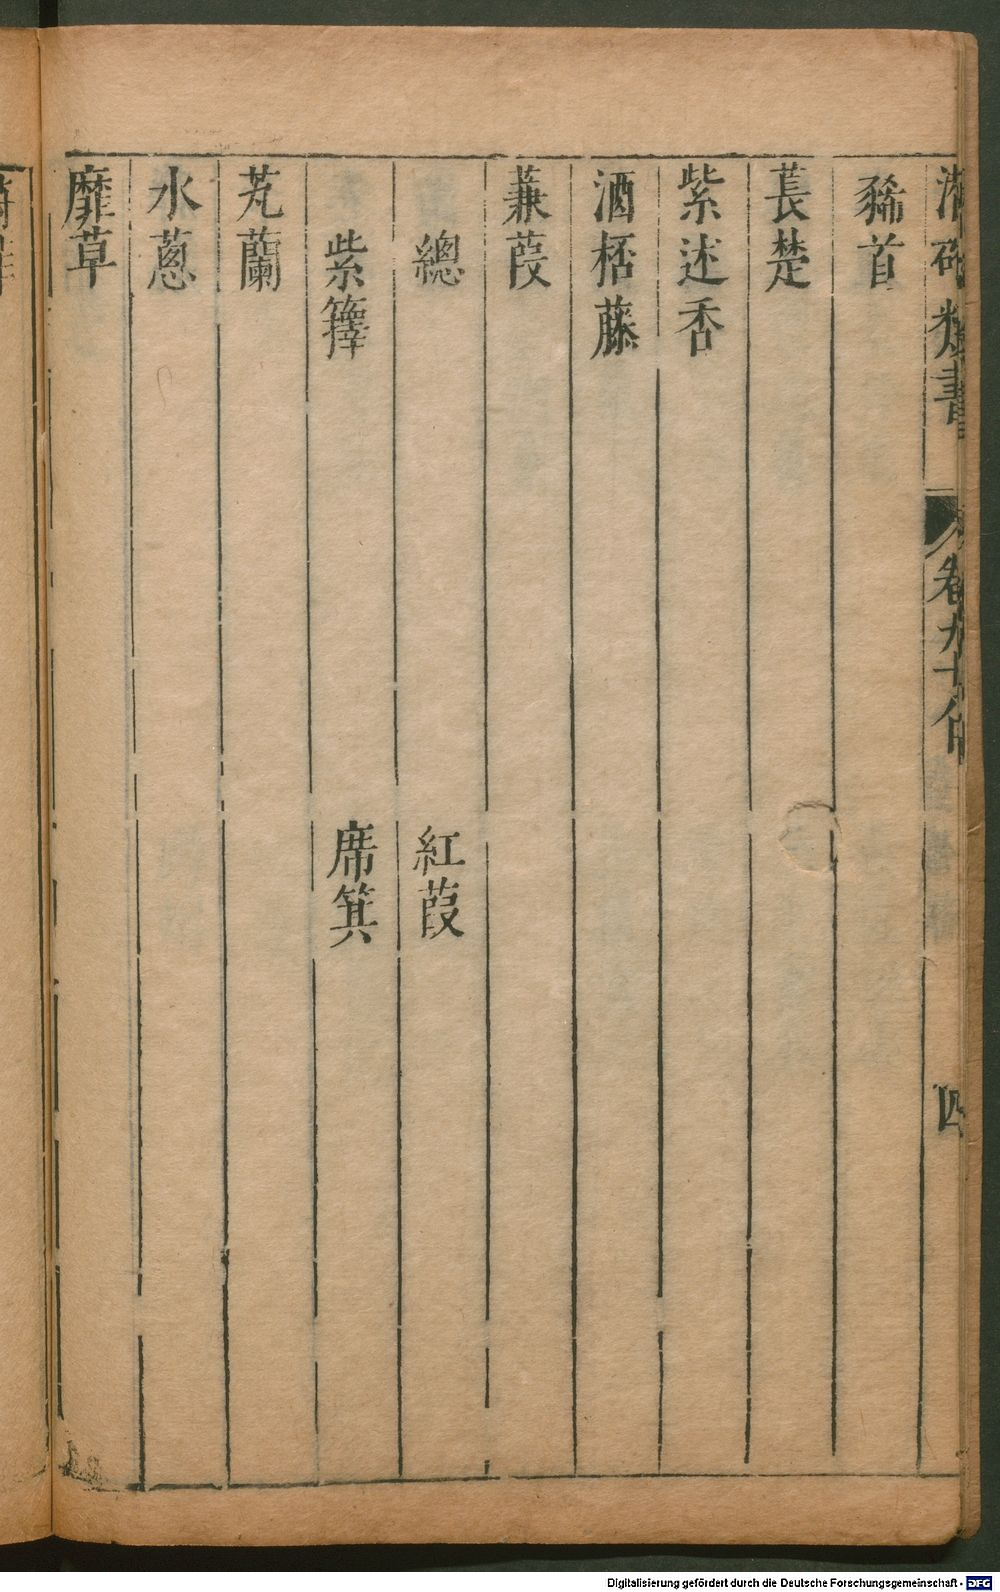 潛確類書
卷九十八目
四
豨首
萇楚
紫述香
酒杯藤
蒹葭
總
紅葭
紫籜
席箕
芄蘭
水蔥
靡草
Digitalisierung gefördert durch die Deutsche Forschungsgemeinschaft - DFG